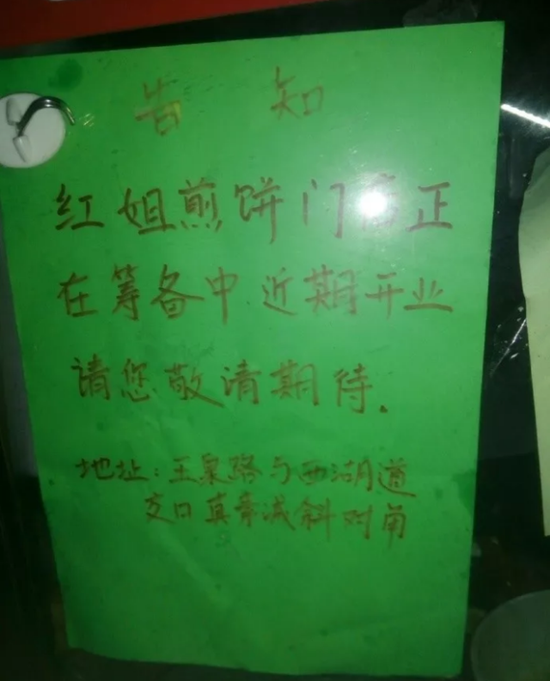 告 知
红姐煎饼门店正
在筹备中近期开业
请您敬请期待.
地址:王泉路与西湖道
交口真素诚斜对角